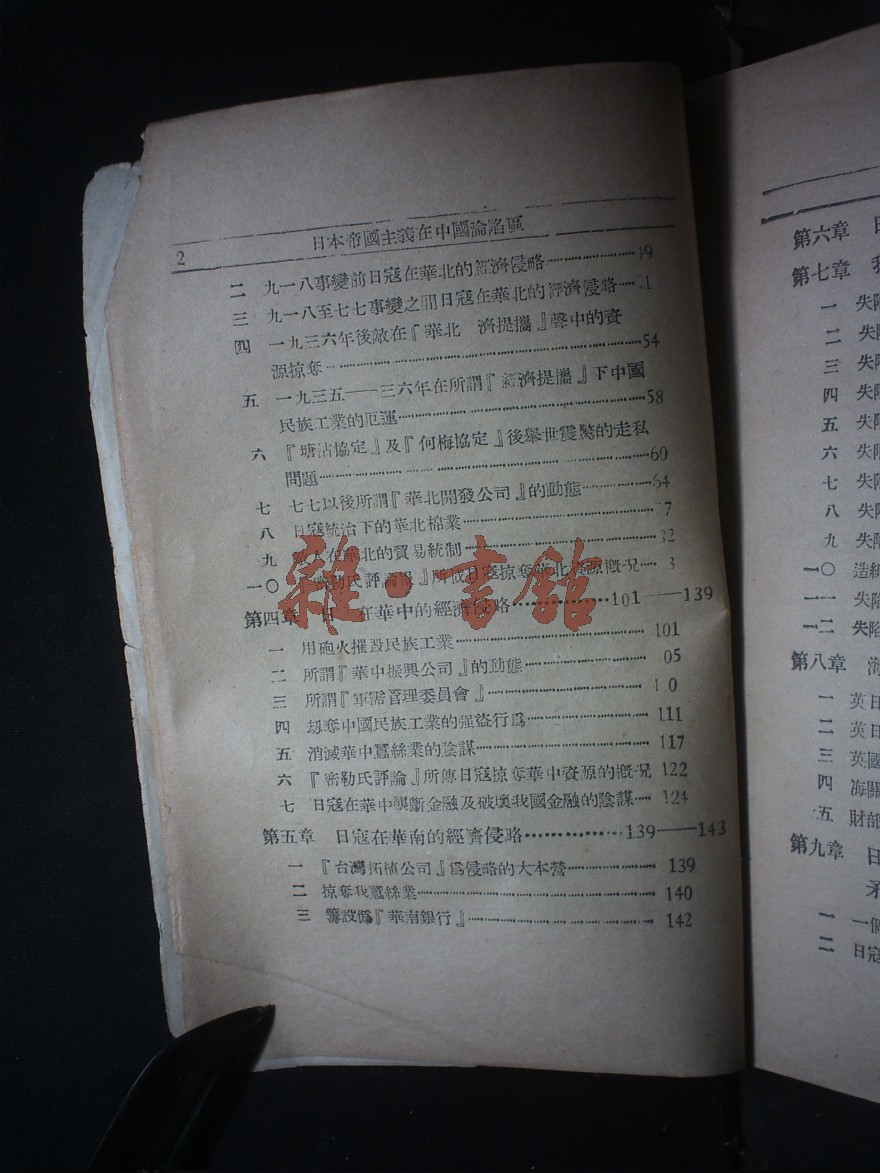 2
日本帝國主義在中國淪陷區
二 九一八事變前日寇在華北的經濟侵略……49
三 九一八至七七事變之間日寇在華北的經濟侵略……1
四 一九三六年後敵在『華北 濟提攜』聲中的資
源掠奪……54
五 一九三五——三六年在所謂『經濟提攜』下中國
民族工業的厄運……58
六 『塘沽協定』及『何梅協定』後舉世震驚的走私
問題……60
七 七七以後所謂『華北開發公司』的動態……64
八 日寇統治下的華北棉業……7
九 在華北的貿易統制……32
一〇 密勒氏評論報』所 日寇掠奪華北 源槪況……3
第四章 日 在華中的經濟侵略……101——139
一 用砲火摧毀民族工業……101
二 所謂『華中振興公司』的動態……05
三 所謂『軍需管理委員會』……1 0
四 刼奪中國民族工業的强盜行爲……111
五 消滅華中蠶絲業的陰謀……117
六 『密勒氏評論』所傳日寇掠奪華中資源的槪況 122
七 日寇在華中壟斷金融及破壞我國金融的陰謀……124
第五章 日寇在華南的經濟侵略……139——143
一 『台灣拓植公司』爲侵略的大本營……139
二 掠奪我蠶絲業……140
三 籌設僞『華南銀行』……142
雜·書館
第六章 日
第七章 我
一 失陷
二 失陷
三 失陷
四 失陷
五 失陷
六 失陷
七 失陷
八 失陷
九 失陷
一〇 造紙
一一 失陷
一二 失陷
第八章 海
一 英日
二 英日
三 英國
四 海關
五 財部
第九章 日
矛
一 一個
二 日寇